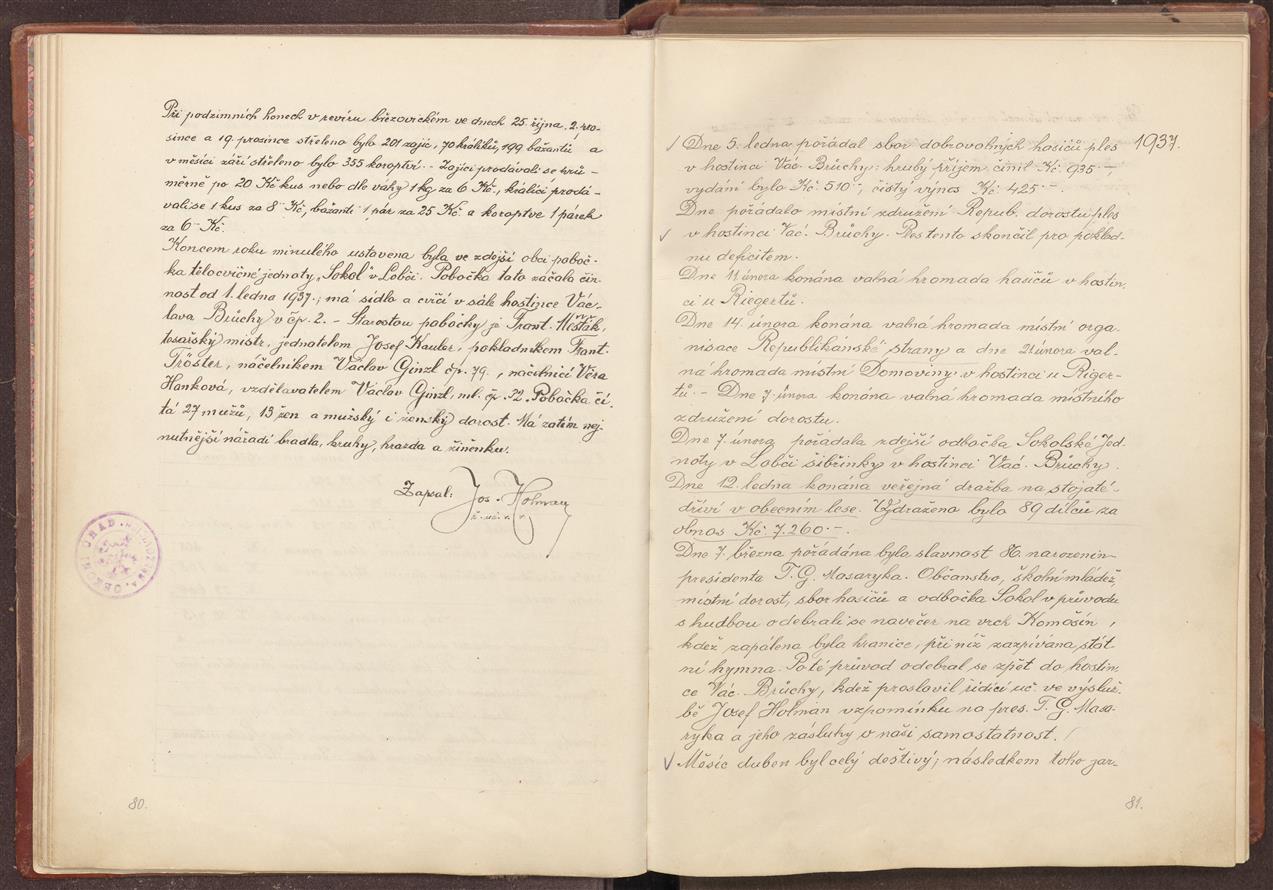 Při podzimních honech v revíru březovickém ve dnech 25. října, 2. pro-
since a 19. prosince střeleno bylo 201 zajíc, 70 králíků, 199 bažantů a
v měsíci září střeleno bylo 355 koroptví. - Zajíci prodávali se prů-
měrně po 20 Kč kus nebo dle váhy 1 kg za 6 Kč, králíci prodá-
vali se 1 kus za 8 Kč, bažanti 1 pár za 25 Kč a koroptve 1 párek
za 6 Kč.
Koncem roku minulého ustavena byla ve zdejší obci poboč-
ka tělocvičné jednoty "Sokol" v Lobči. Pobočka tato začala čin-
nost od 1. ledna 1937; má sídlo a cvičí v sále hostince Vác-
lava Brůchy v čp. 2. - Starostou pobočky je Frant. Mešťák,
tesařský mistr, jednatelem Josef Kauler, pokladníkem Frant.
Tröster, náčelníkem Václav Ginzl čp. 79., náčelnicí Věra
Hanková, vzdělavatelem Václav Ginzl, ml. čp. 52. Pobočka čí-
tá 27 mužů, 13 žen a mužský i ženský dorost. Má zatím nej
nutnější nářadí bradla, kruhy, hrazda a žíněnku.
Zapsal: Jos. Holman
ř. uč. v. v.
80.
1937.
Dne 5. ledna pořádal sbor dobrovolných hasičů ples
v hostinci Vác. Brůchy: hrubý příjem činil Kč 935.-,
vydání bylo Kč 510.-, čistý výnos Kč 425.-.
Dne pořádalo místní združení Repub. dorostu ples
v hostinci Vác. Brůchy. Ples tento skončil pro poklad-
nu deficitem.
Dne 11 února konána valná hromada hasičů v hostin-
ci u Riegertů.
Dne 14. února konána valná hromada místní orga
nisace Republikánské strany a dne 21 února val-
ná hromada místní Domoviny v hostinci u Riger-
tů. - Dne 7. února konána valná hromada místního
združení dorostu.
Dne 7. února pořádala zdejší odbočka Sokolské Jed
noty v Lobči šibřinky v hostinci Vác. Brůchy.
Dne 12. ledna konána veřejná dražba na stojaté
dříví v obecním lese. Vydraženo bylo 89 dílců za
obnos Kč 7.260.-
Dne 7. března pořádána byla slavnost 86. narozenin
presidenta T. G. Masaryka. Občanstvo, školní mládež,
místní dorost, sbor hasičů a odbočka Sokol v průvodu
s hudbou odebrali se navečer na vrch Komošín,
kdež zapálena byla hranice, při níž zazpívána stát-
ní hymna. Poté průvod odebral se zpět do hostin-
ce Vác. Brůchy, kdež proslovil řídící uč. ve výsluž-
bě Josef Holman vzpomínku na pres. T. G. Masa-
ryka a jeho zásluhy o naši samostatnost.
Měsíc duben byl celý deštivý; následkem toho jar-
81.